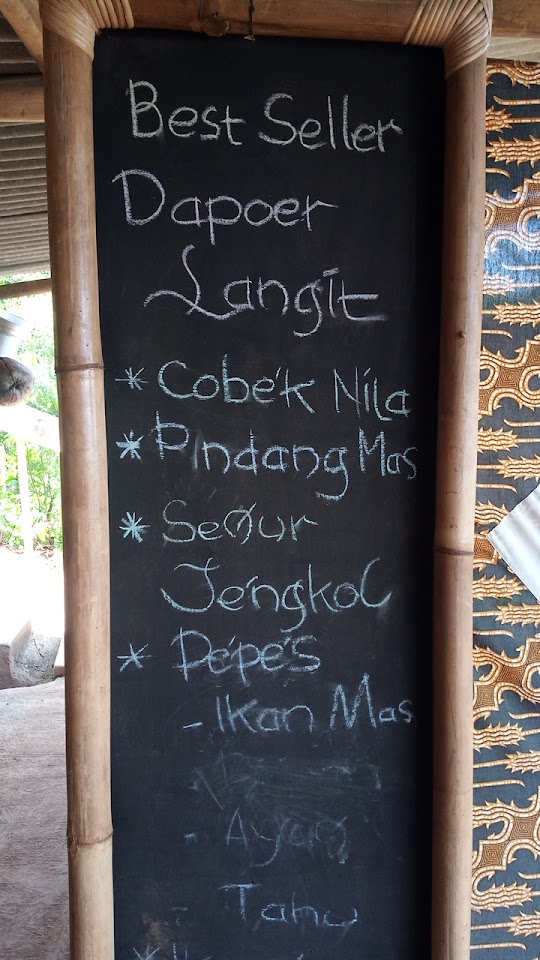 Best Seller
Dapoer
Langit
* Cobék Nila
* Pindang Mas
* Semur
Jéngkol
* Pépés
- Ikan Mas
- Ayam
- Tahu